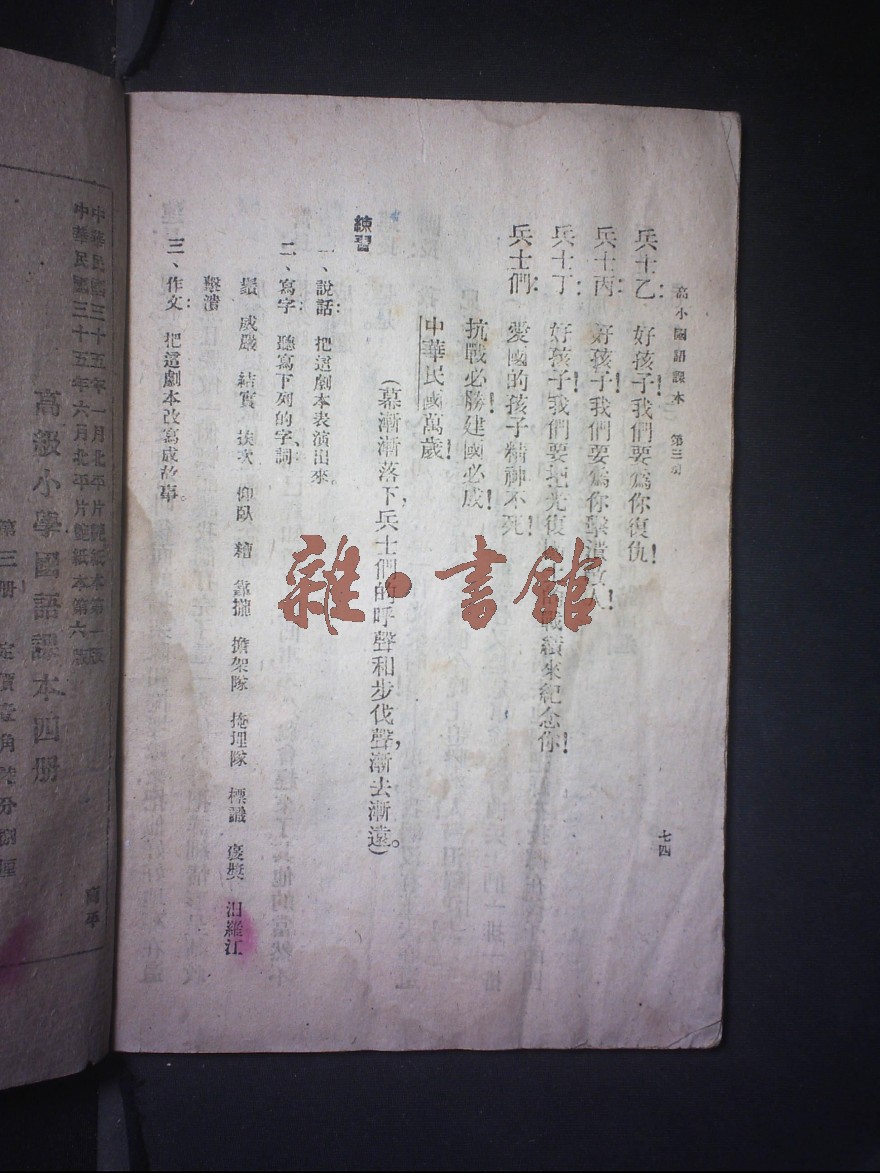 高小國語課本 第三冊
七四
兵士乙：好孩子！我們要為你復仇！
兵士丙：好孩子！我們要為你擊潰敵人！
兵士丁：好孩子！我們要把光復 戰績來紀念你！
兵士們：愛國的孩子精神不死！
抗戰必勝！建國必成！
中華民國萬歲！
（幕漸漸落下，兵士們的呼聲和步伐聲，漸去漸遠。）
練習
一、說話：把這劇本表演出來。
二、寫字：聽寫下列的字、詞
威嚴 結實 挨次 仰臥 糟 靠攏 擔架隊 掩埋隊 標識 褒獎 汨羅江
擊潰
三、作文：把這劇本改寫成故事。
中華民國三十五年一月北平片艷紙本第一版
中華民國三十五年六月北平片艷紙本第六版
高級小學國語課本四册
第三册 定價壹角 分捌厘
雜·書館